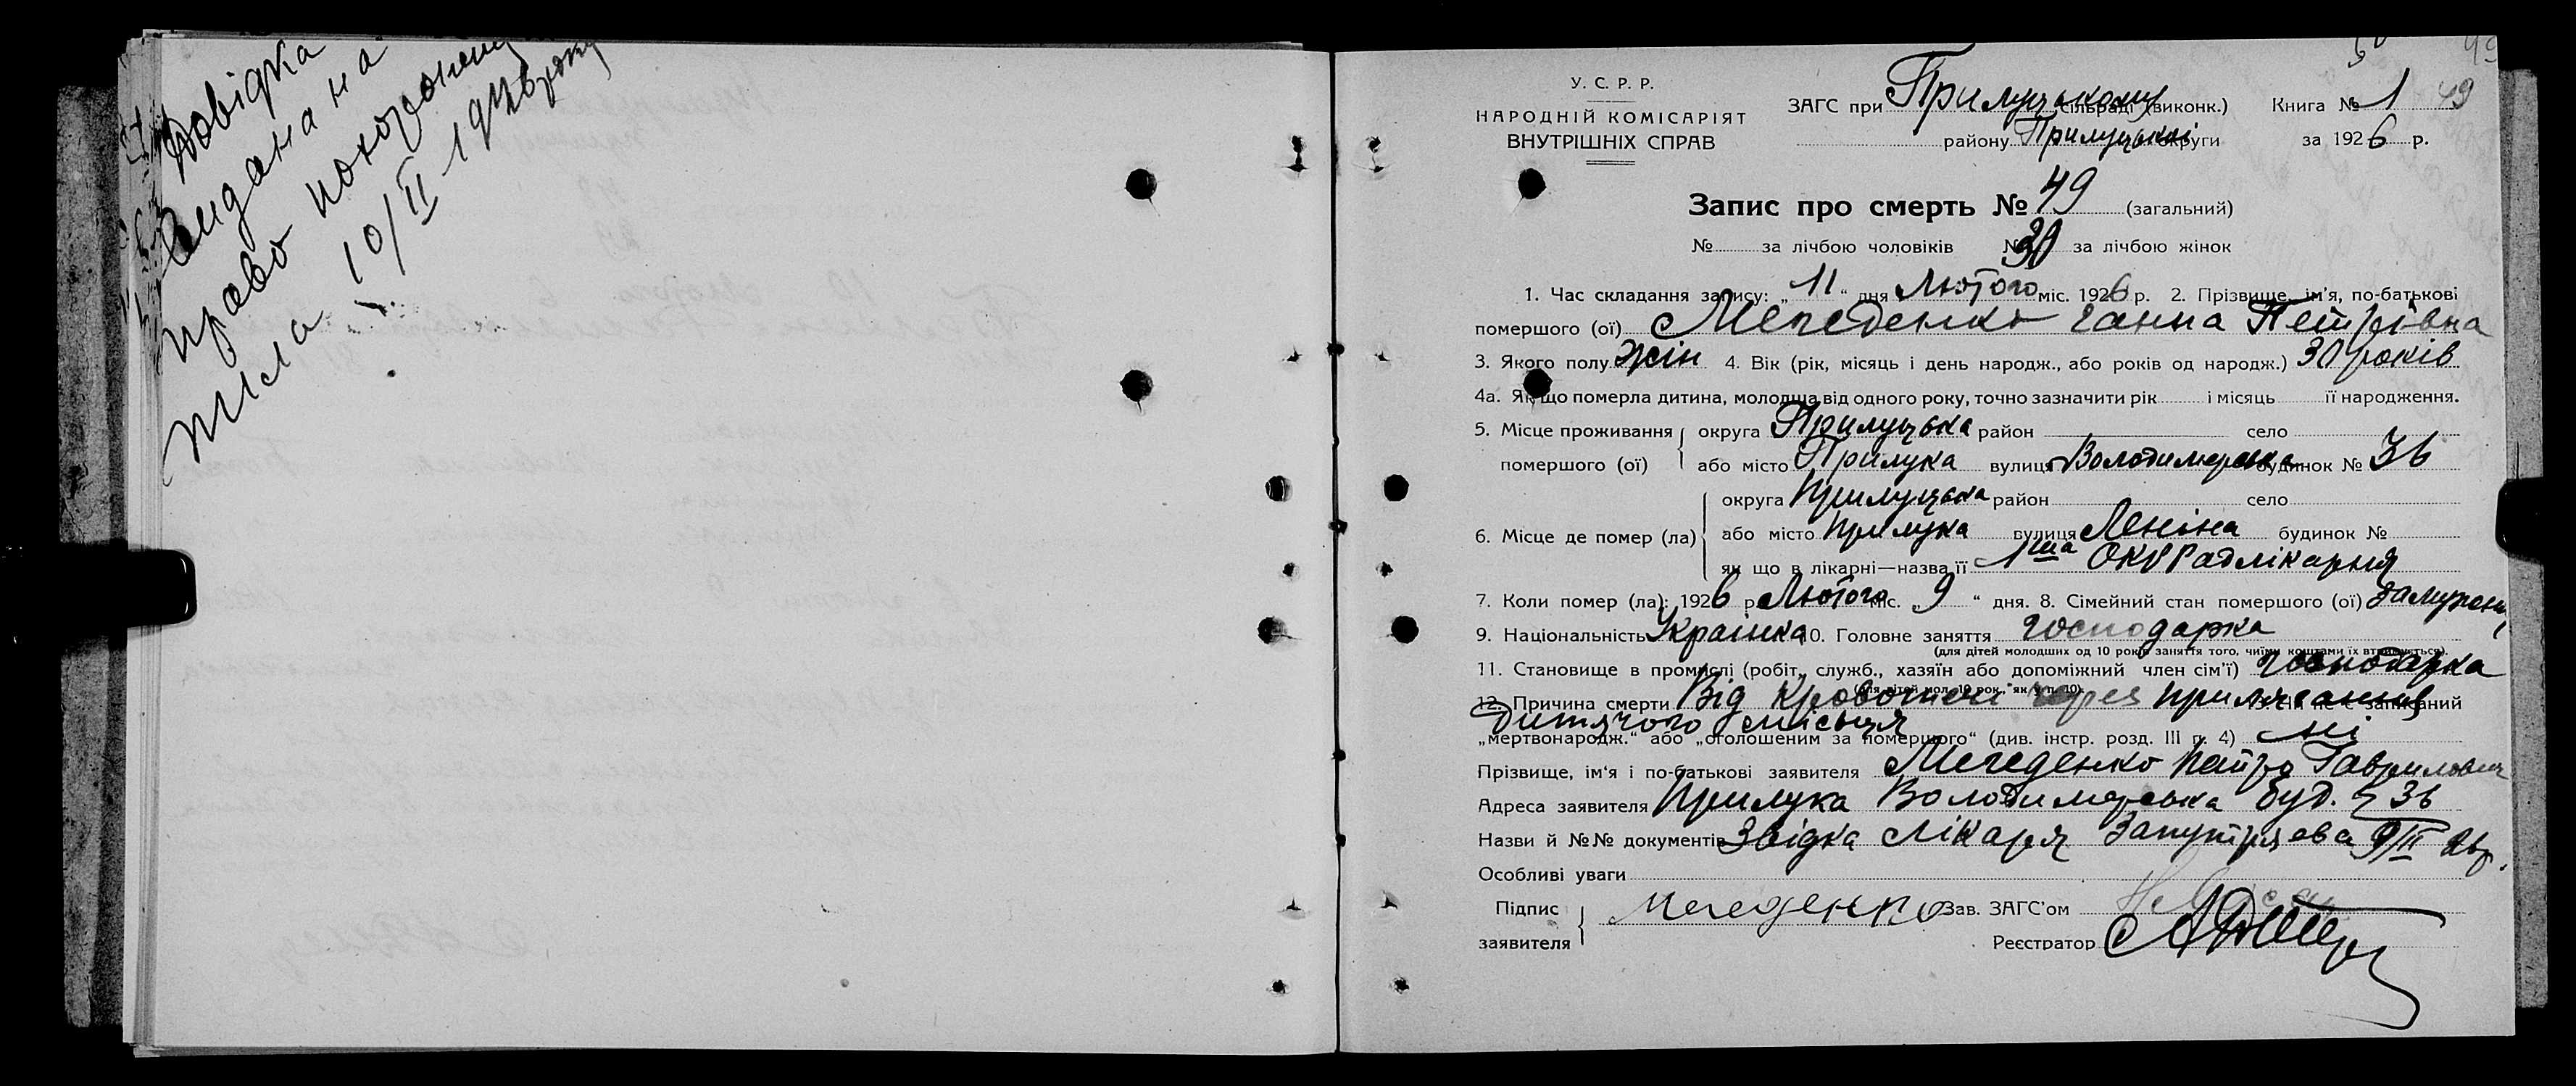 Довідка
видана на
право похорону
тіла 10/II 1926 року
У. С. Р. Р.
НАРОДНІЙ КОМІСАРІЯТ
ВНУТРІШНІХ СПРАВ
ЗАГС при Прилуцькому сільраді (виконк.) Книга № 1 49
району Прилуцької округи за 1926 р.
Запис про смерть № 49 (загальний)
№ за лічбою чоловіків № 30 за лічбою жінок
1. Час складання запису: „11“ дня Лютого міс. 1926 р. 2. Прізвище, ім'я, по-батькові
помершого (ої) Мегеденко Ганна Петрівна
3. Якого полу жін 4. Вік (рік, місяць і день народж., або років од народж.) 30 років
4а. Якщо померла дитина, молодша від одного року, точно зазначити рік і місяць її народження.
5. Місце проживання округа Прилуцька район село
помершого (ої) або місто Прилука вулиця Володимерська будинок № 36
округа Прилуцька район село
6. Місце де помер (ла) або місто Прилука вулиця Леніна будинок №
як що в лікарні—назва її 1ша Окррадлікарня
7. Коли помер (ла): 1926 р. Лютого міс. „9“ дня. 8. Сімейний стан помершого (ої) замужня
9. Національність Українка 10. Головне заняття господарка
(для дітей молодших од 10 років заняття того, чиїми коштами їх втримується).
11. Становище в промислі (робіт., служб., хазяїн або допоміжний член сім'ї) господарка
(для дітей мол. 10 рок., як у п. 10).
12. Причина смерти Від кровотечі через прилягання 13. Чи не є записаний
дитячого місьця
„мертвонародж.“ або „оголошеним за помершого“ (див. інстр. розд. III п. 4) ні
Прізвище, ім'я і по-батькові заявителя Мегеденко Петро Гаврилович
Адреса заявителя Прилука Володимерська буд. № 36
Назви й №№ документів Звідка лікаря 9/II 26 р.
Особливі уваги
Підпис
заявителя Мегеденко Зав. ЗАГС'ом
Реєстратор